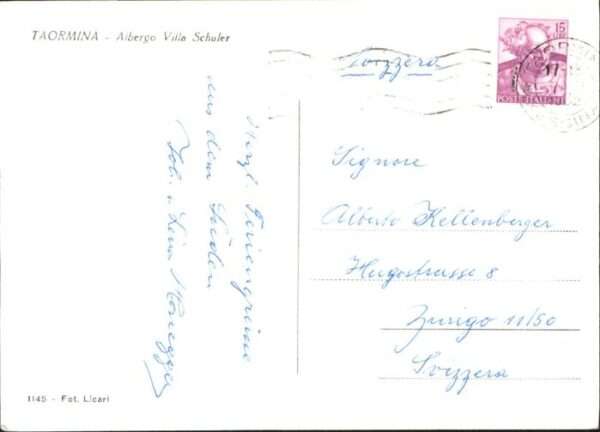 TAORMINA - Albergo Villa Schuler
Svizzera
15
POSTE ITALIANE
Herzl. Feriengrüsse
aus dem Süden
Jol. Lina Honegger
Signore
Alberto Kellenberger
Hugostrasse 8
Zurigo 11/50
Svizzera
1145 - Fot. Licari